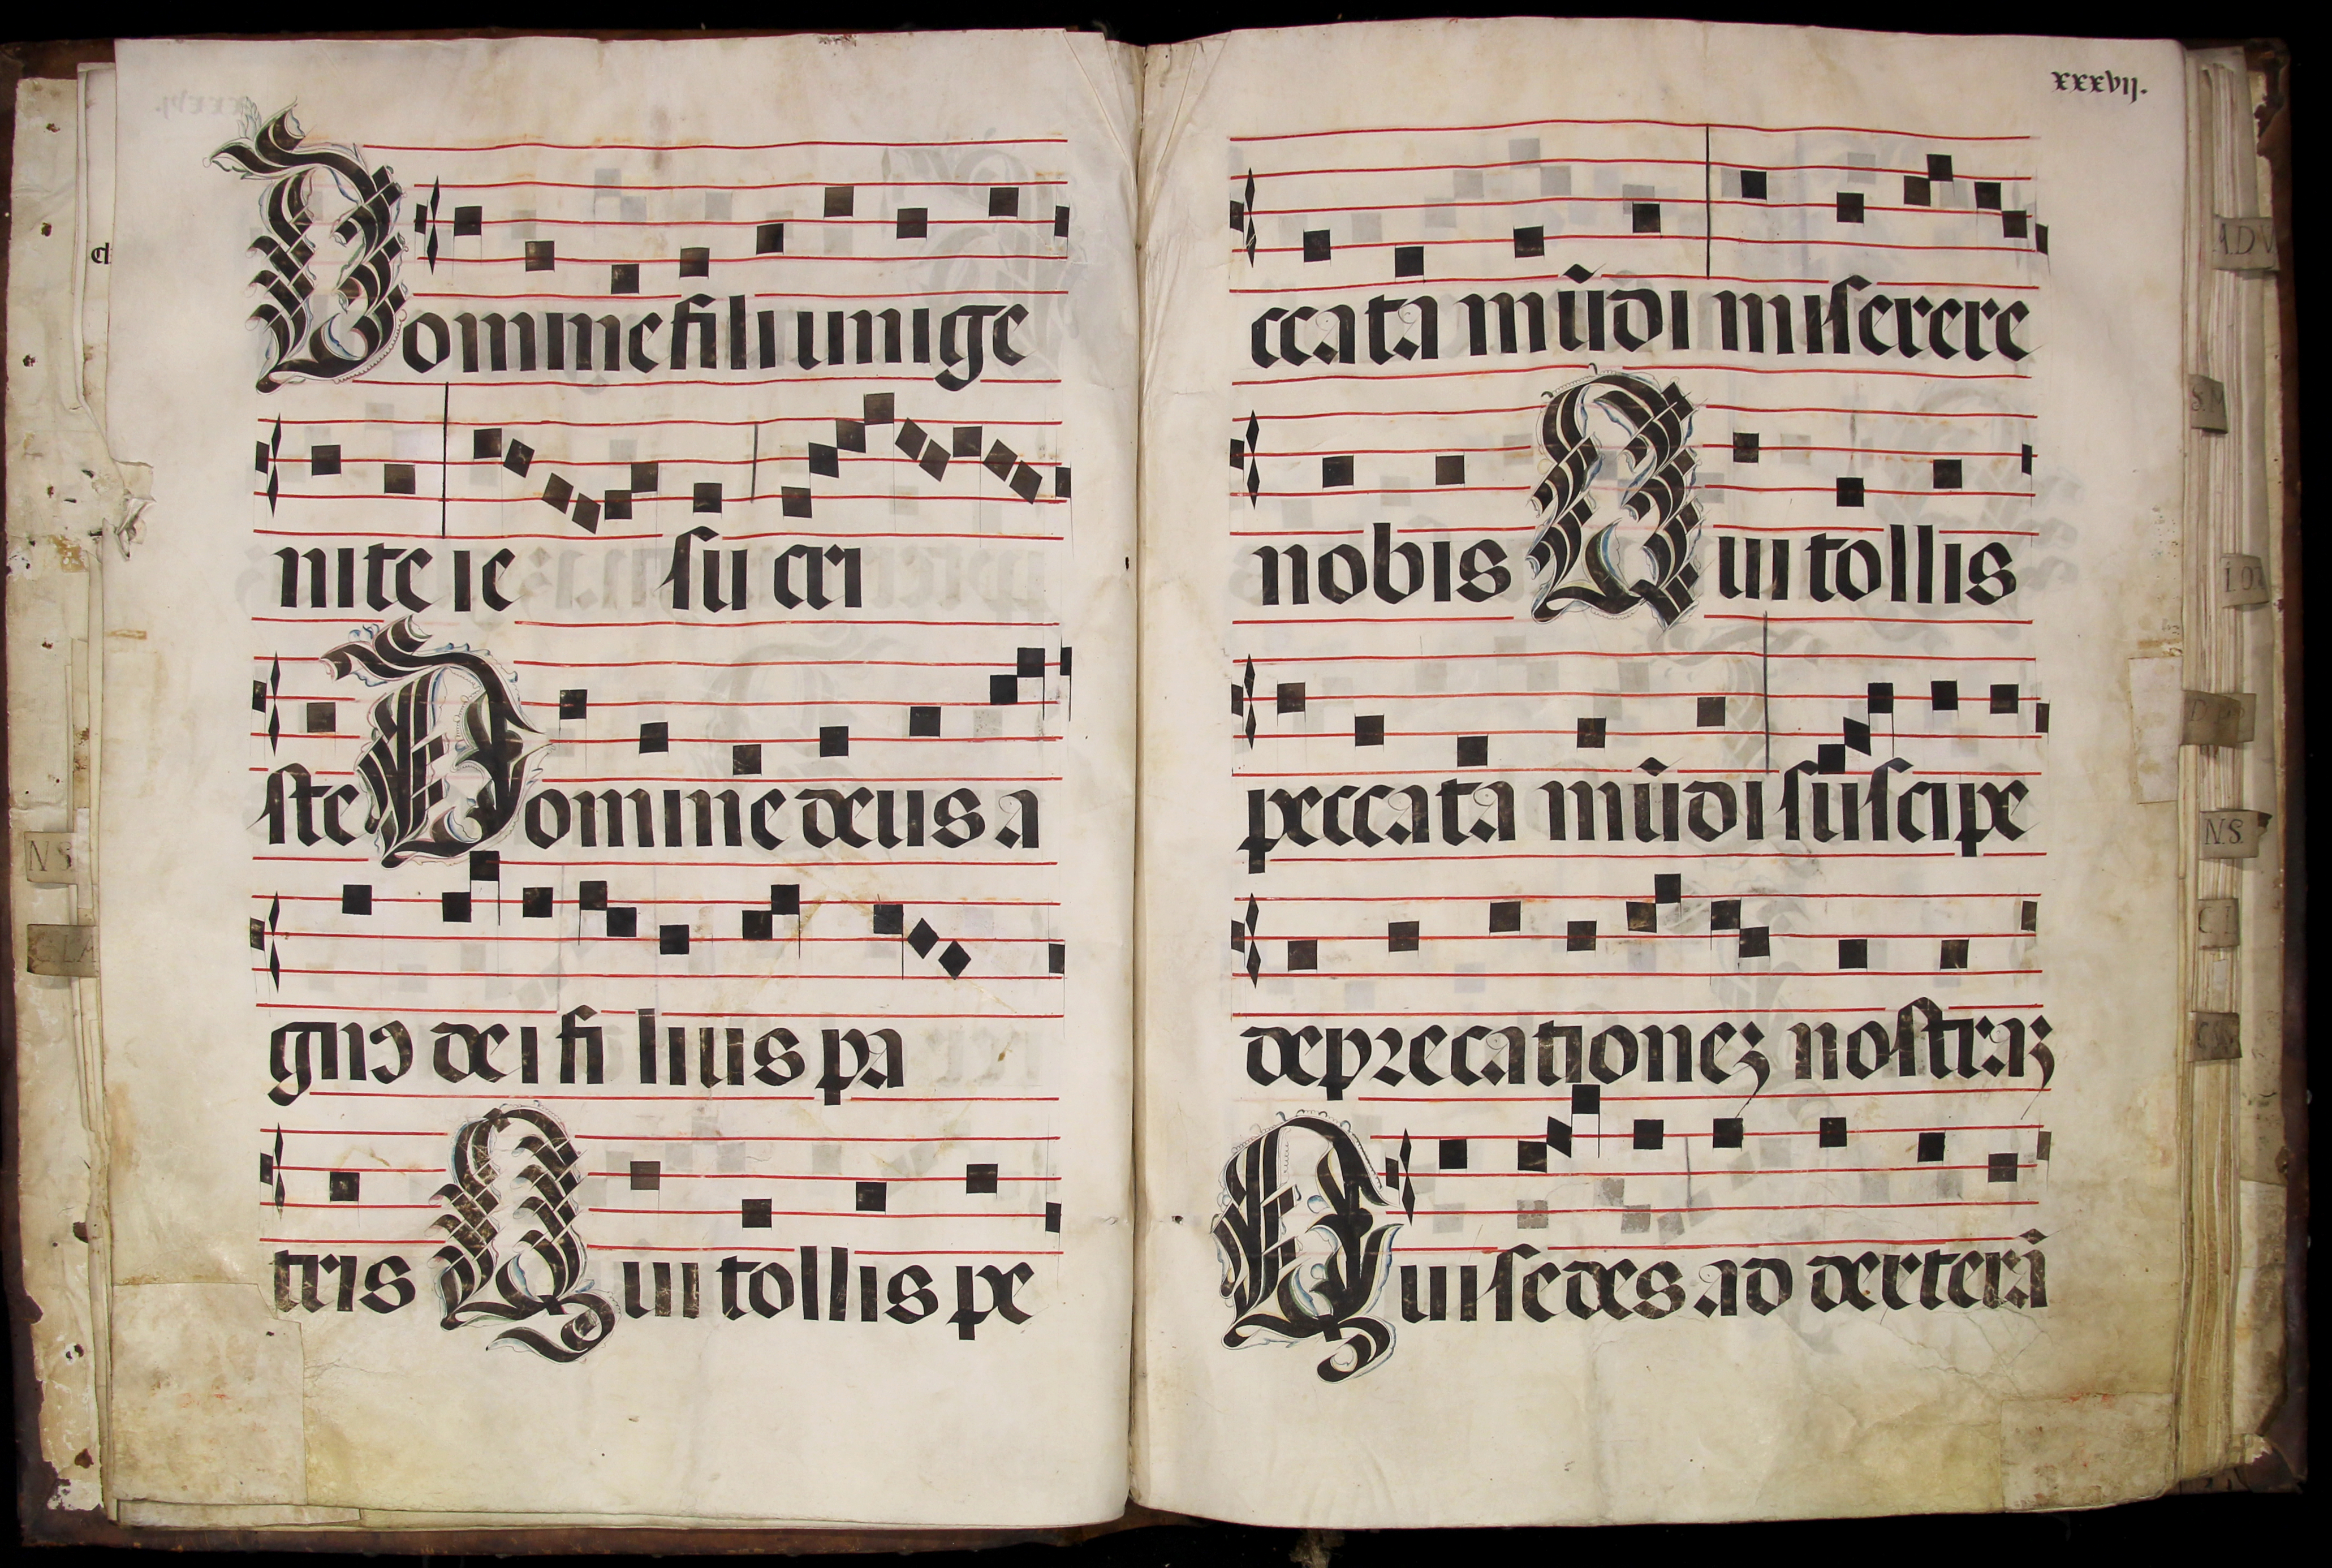 Domine fili unige
nite ie su cri
ste Domine deus a
gnꝰ dei fi lius pa
tris Qui tollis pe
xxxvij.
ccata mūdi miserere
nobis Qui tollis
peccata mūdi suscipe
deprecationeʒ nostraʒ
Qui sedes ad dexterā
ADV
N S
N.S.
C I